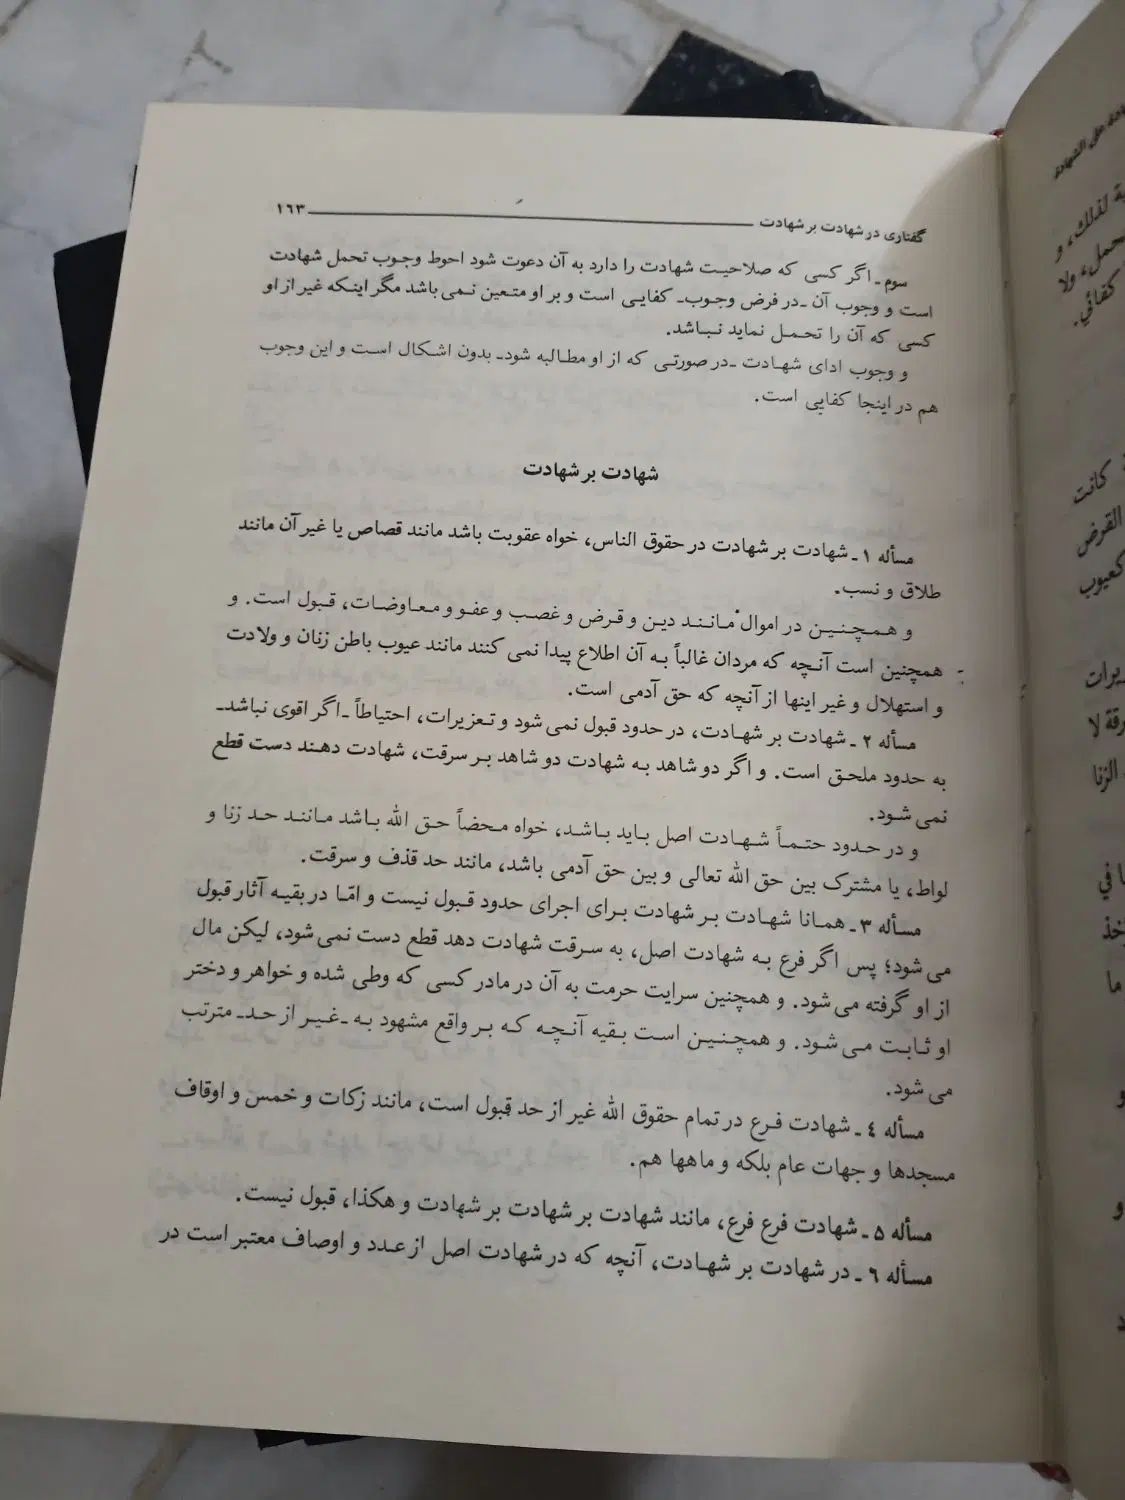 گفتاری در شهادت بر شهادت ۱۶۳
سوم ـ اگر کسی که صلاحیت شهادت را دارد به آن دعوت شود احوط وجوب تحمل شهادت
است و وجوب آن ـ در فرض وجوب ـ کفایی است و بر او متعین نمی باشد مگر اینکه غیر از او
کسی که آن را تحمل نماید نباشد.
و وجوب ادای شهادت ـ در صورتی که از او مطالبه شود ـ بدون اشکال است و این وجوب
هم در اینجا کفایی است.
شهادت بر شهادت
مسأله ۱ ـ شهادت بر شهادت در حقوق الناس، خواه عقوبت باشد مانند قصاص یا غیر آن مانند
طلاق و نسب.
و همچنین در اموال مانند دین و قرض و غصب و عفو و معاوضات، قبول است. و
همچنین است آنچه که مردان غالباً به آن اطلاع پیدا نمی کنند مانند عیوب باطن زنان و ولادت
و استهلال و غیر اینها از آنچه که حق آدمی است.
مسأله ۲ ـ شهادت بر شهادت، در حدود قبول نمی شود و تعزیرات، احتیاطاً ـ اگر اقوی نباشد ـ
به حدود ملحق است. و اگر دو شاهد به شهادت دو شاهد بر سرقت، شهادت دهند دست قطع
نمی شود.
و در حدود حتماً شهادت اصل باید باشد، خواه محضاً حق الله باشد مانند حد زنا و
لواط، یا مشترک بین حق الله تعالی و بین حق آدمی باشد، مانند حد قذف و سرقت.
مسأله ۳ ـ همانا شهادت بر شهادت برای اجرای حدود قبول نیست و امّا در بقیه آثار قبول
می شود؛ پس اگر فرع به شهادت اصل، به سرقت شهادت دهد قطع دست نمی شود، لیکن مال
از او گرفته می شود. و همچنین سرایت حرمت به آن در مادر کسی که وطی شده و خواهر و دختر
او ثابت می شود. و همچنین است بقیه آنچه که بر واقع مشهود به ـ غیر از حد ـ مترتب
می شود.
مسأله ۴ ـ شهادت فرع در تمام حقوق الله غیر از حد قبول است، مانند زکات و خمس و اوقاف
مسجدها و جهات عام بلکه و ماهها هم.
مسأله ۵ ـ شهادت فرع فرع، مانند شهادت بر شهادت بر شهادت و هکذا، قبول نیست.
مسأله ۶ ـ در شهادت بر شهادت، آنچه که در شهادت اصل از عدد و اوصاف معتبر است در